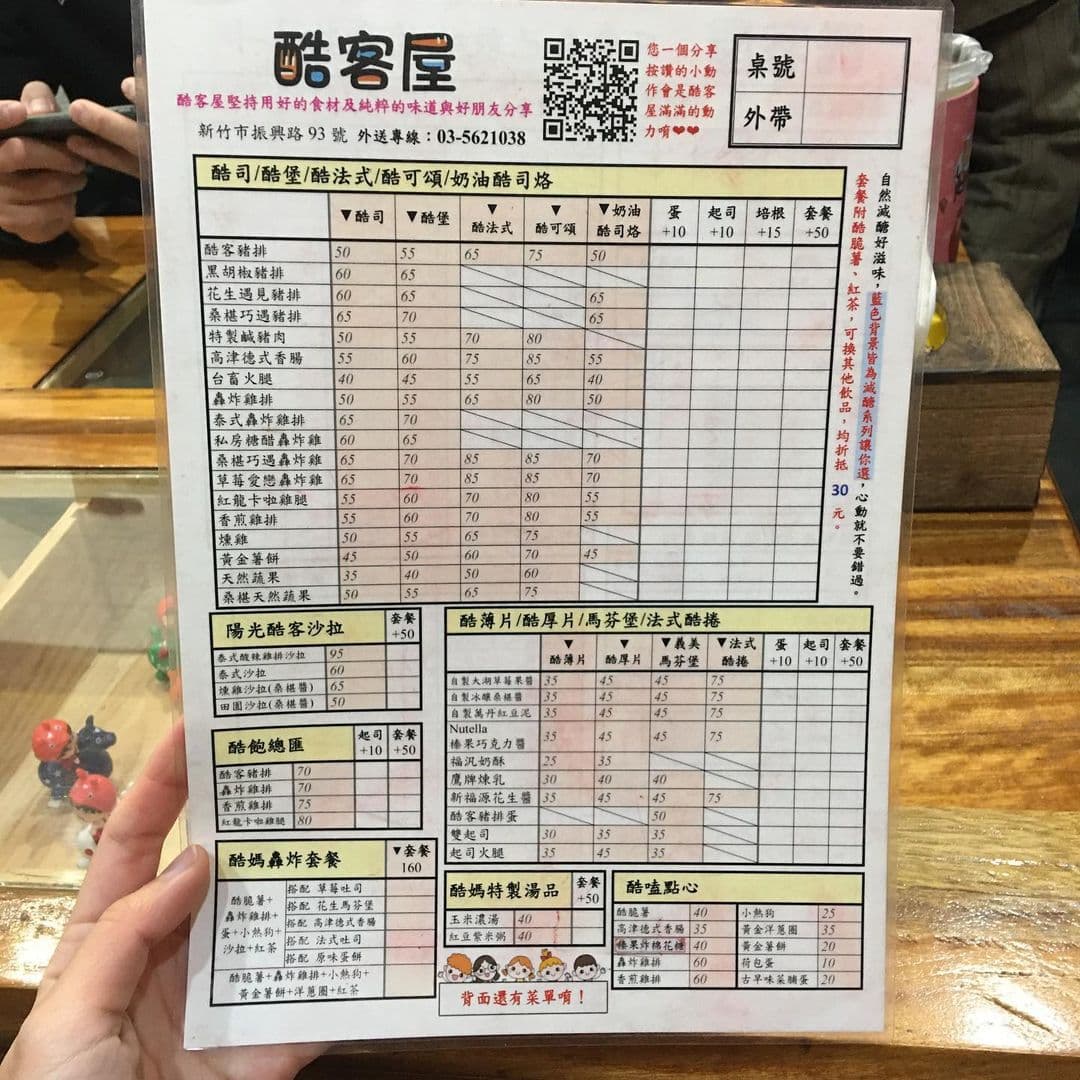 酷客屋
酷客屋堅持用好的食材及純粹的味道與好朋友分享
新竹市振興路 93 號 外送專線：03-5621038
您一個分享
按讚的小動
作會是酷客
屋滿滿的動
力唷❤❤
桌號
外帶
酷司/酷堡/酷法式/酷可頌/奶油酷司烙
▼酷司 ▼酷堡 ▼酷法式 ▼酷可頌 ▼奶油酷司烙 蛋+10 起司+10 培根+15 套餐+50
酷客豬排 50 55 65 75 50
黑胡椒豬排 60 65
花生遇見豬排 60 65 65
桑椹巧遇豬排 65 70 65
特製鹹豬肉 50 55 70 80
高津德式香腸 55 60 75 85 55
台畜火腿 40 45 55 65 40
轟炸雞排 50 55 65 80 50
泰式轟炸雞排 65 70
私房糖醋轟炸雞 60 65
桑椹巧遇轟炸雞 65 70 85 85 70
草莓愛戀轟炸雞 65 70 85 85 70
紅龍卡啦雞腿 55 60 70 80 55
香煎雞排 55 60 70 80 55
燻雞 50 55 65 75
黃金薯餅 45 50 60 70 45
天然蔬果 35 40 50 60
桑椹天然蔬果 50 55 65 75
自然減醣好滋味，藍色背景皆為減醣系列讓你選，心動就不要錯過。
套餐附酷脆薯、紅茶，可換其他飲品，均折抵 30 元。
陽光酷客沙拉 套餐+50
泰式酸辣雞排沙拉 95
泰式沙拉 60
燻雞沙拉(桑椹醬) 65
田園沙拉(桑椹醬) 50
酷飽總匯 起司+10 套餐+50
酷客豬排 70
轟炸雞排 70
香煎雞排 75
紅龍卡啦雞腿 80
酷媽轟炸套餐 ▼套餐 160
酷脆薯+
轟炸雞排+
蛋+小熱狗+
沙拉+紅茶
搭配 草莓吐司
搭配 花生馬芬堡
搭配 高津德式香腸
搭配 法式吐司
搭配 原味蛋餅
酷脆薯+轟炸雞排+小熱狗+
黃金薯餅+洋蔥圈+紅茶
酷薄片/酷厚片/馬芬堡/法式酷捲
▼酷薄片 ▼酷厚片 ▼義美馬芬堡 ▼法式酷捲 蛋+10 起司+10 套餐+50
自製大湖草莓果醬 35 45 45 75
自製冰釀桑椹醬 35 45 45 75
自製萬丹紅豆泥 35 45 45 75
Nutella
榛果巧克力醬 35 45 45 75
福汎奶酥 25 35
鷹牌煉乳 30 40 40
新福源花生醬 35 45 45 75
酷客豬排蛋 50
雙起司 30 35 35
起司火腿 35 45 35
酷媽特製湯品 套餐+50
玉米濃湯 40
紅豆紫米粥 40
背面還有菜單唷！
酷嗑點心
酷脆薯 40 小熱狗 25
高津德式香腸 35 黃金洋蔥圈 35
榛果炸棉花糖 40 黃金薯餅 20
轟炸雞排 60 荷包蛋 10
香煎雞排 60 古早味菜脯蛋 20